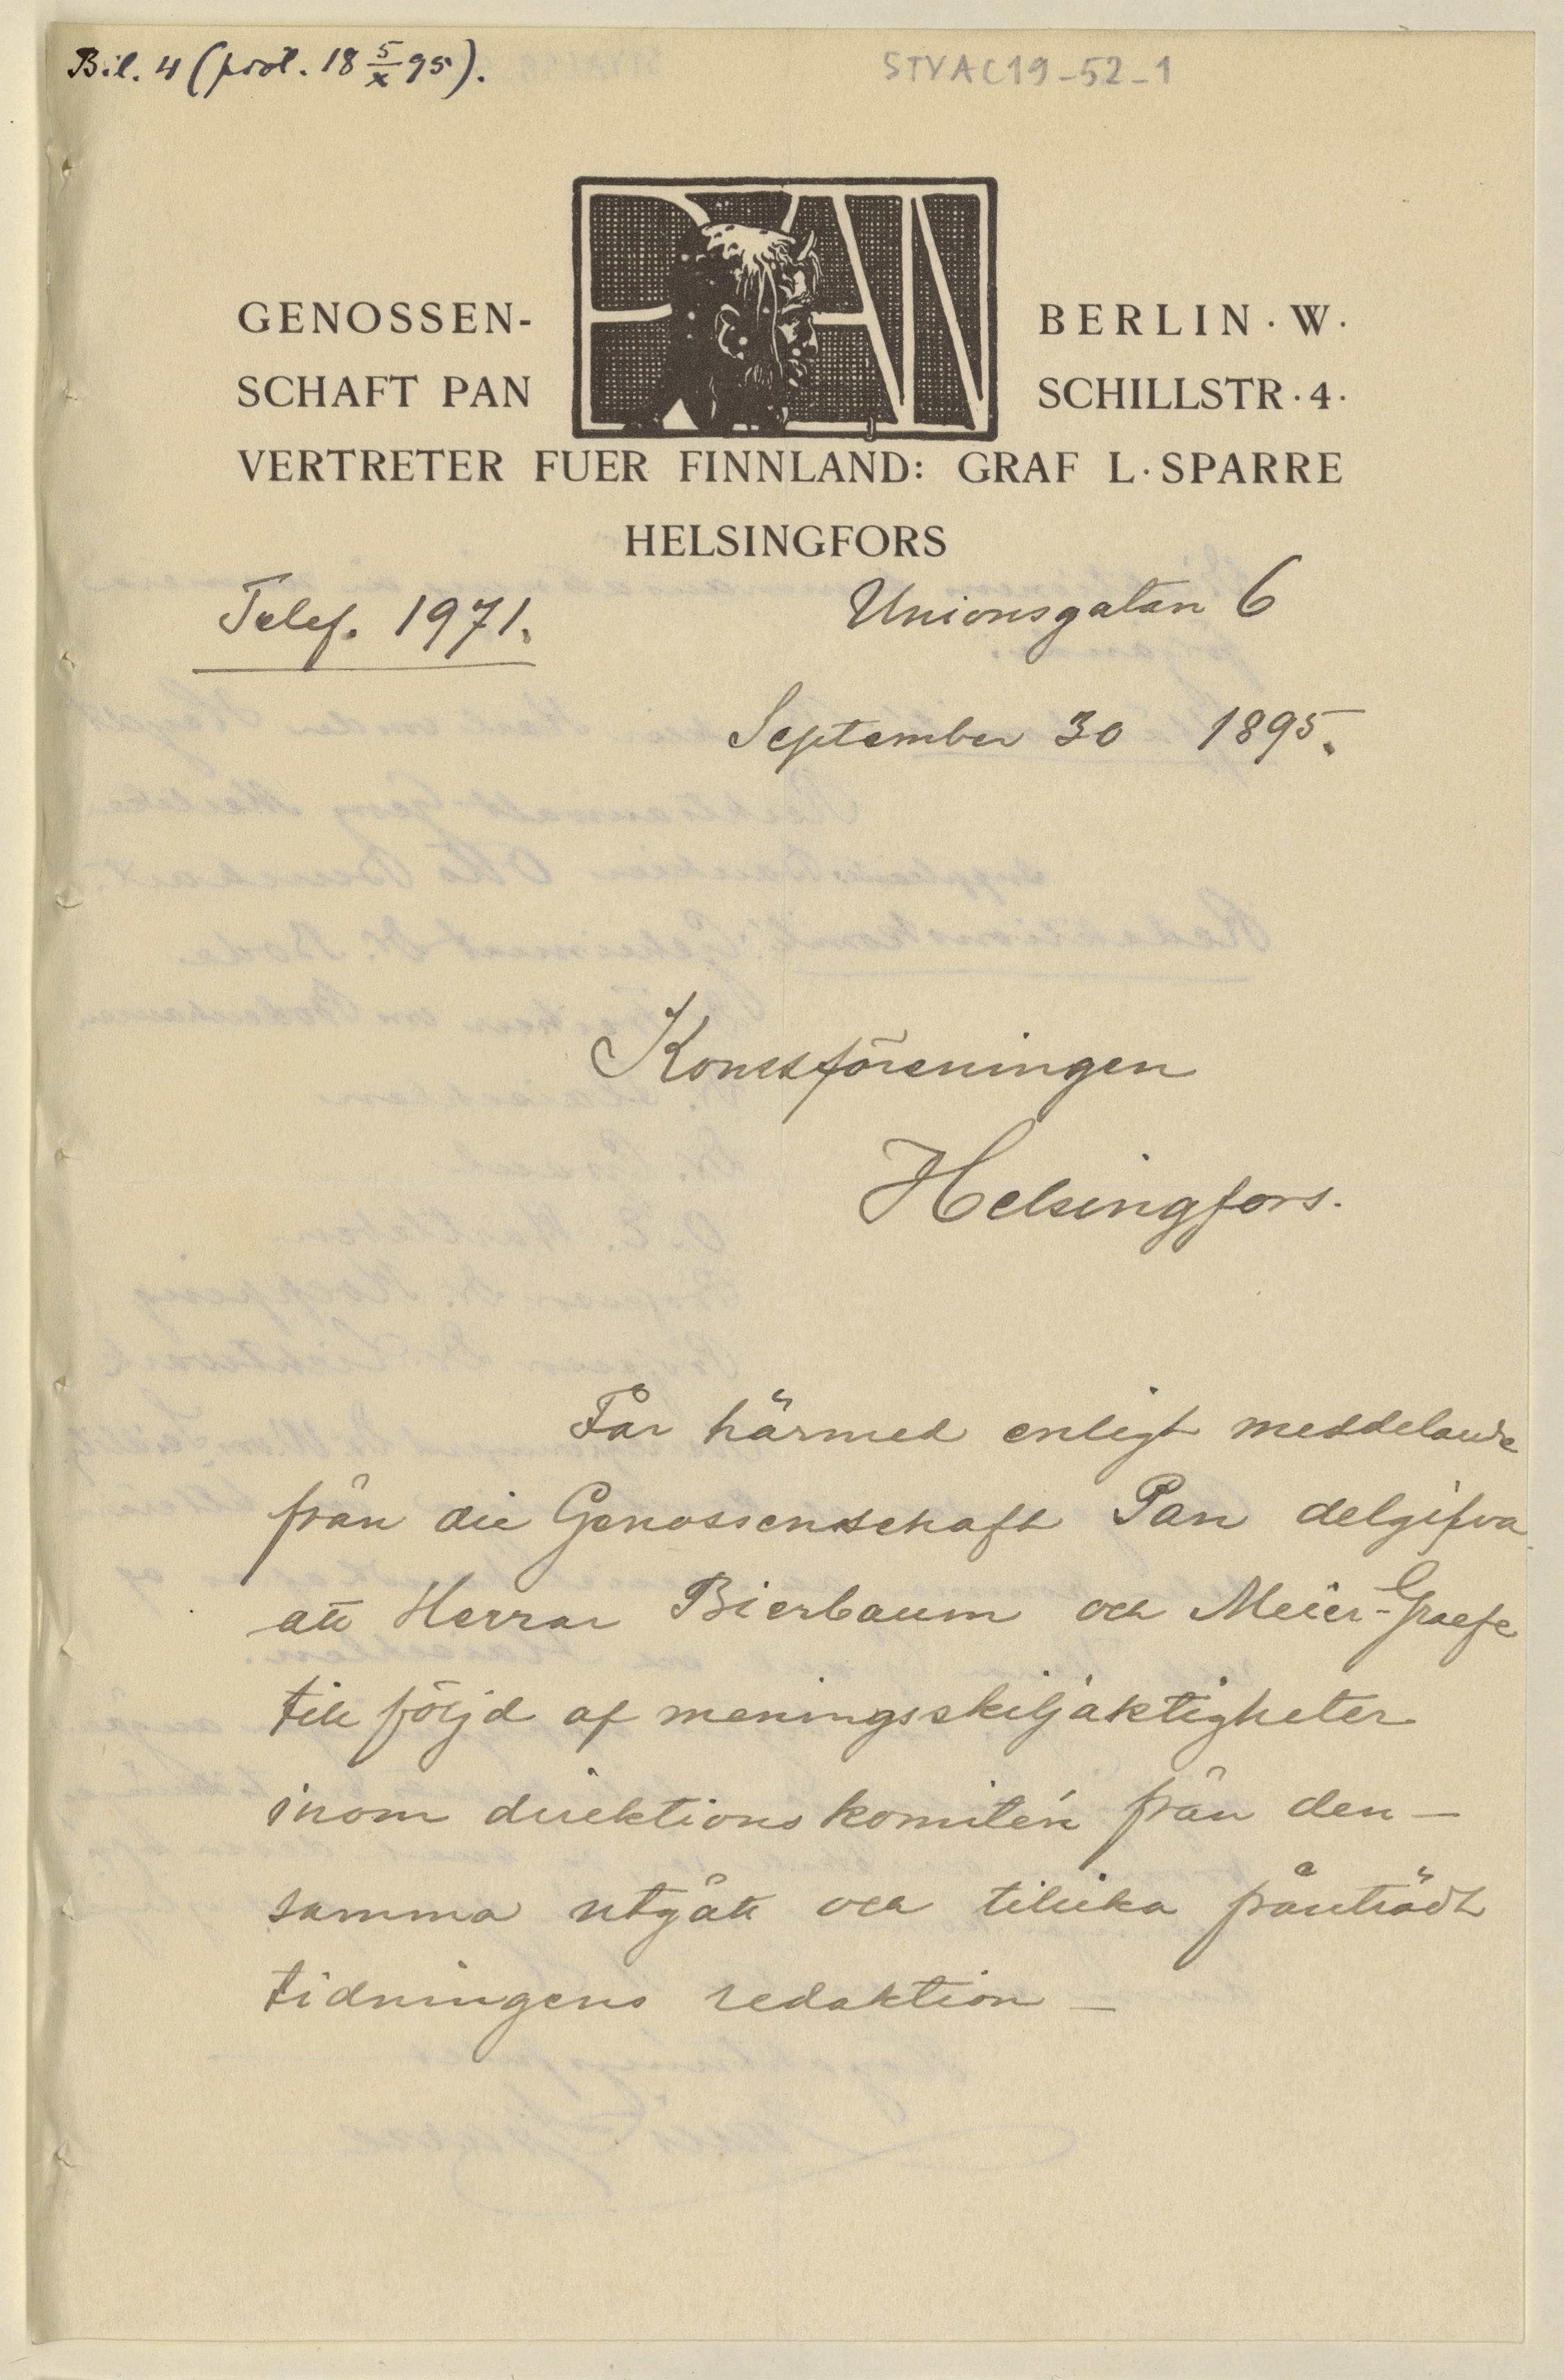 Bil. 4 (prot. 18 5/X 95).
STYAC19-52-1
PAN
GENOSSEN-
SCHAFT PAN
BERLIN · W ·
SCHILLSTR · 4 ·
VERTRETER FUER FINNLAND: GRAF L · SPARRE
HELSINGFORS
Telef. 1971.
Unionsgatan 6
September 30 1895.
Konstföreningen
Helsingfors.
Får härmed enligt meddelande
från die Genossenschaft Pan delgifva
att Herrar Bierbaum och Meier-Graefe
till följd af meningsskiljaktigheter
inom direktionskomitén från den-
samma utgått och tillika frånträdt
tidningens redaktion —